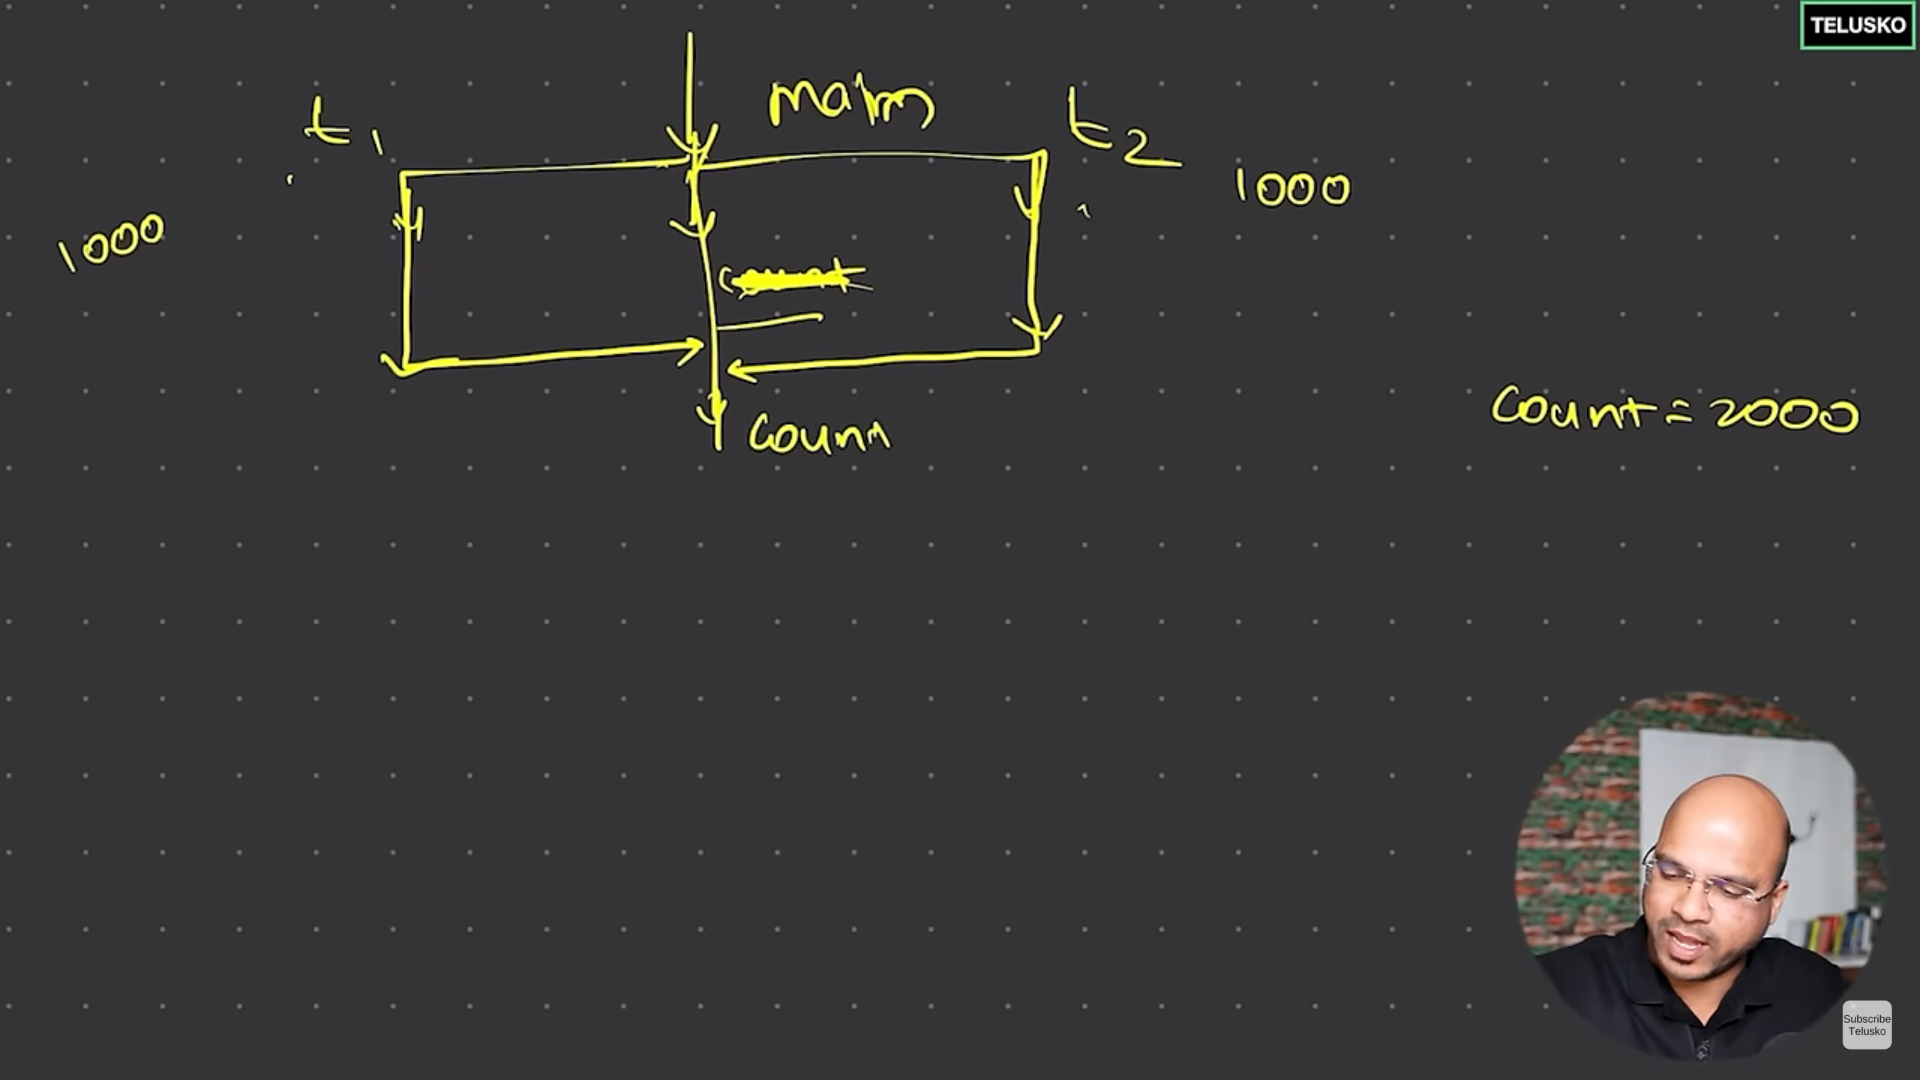 TELUSKO
main
t1
t2
1000
1000
count
Count = 2000
Count
Subscribe
Telusko